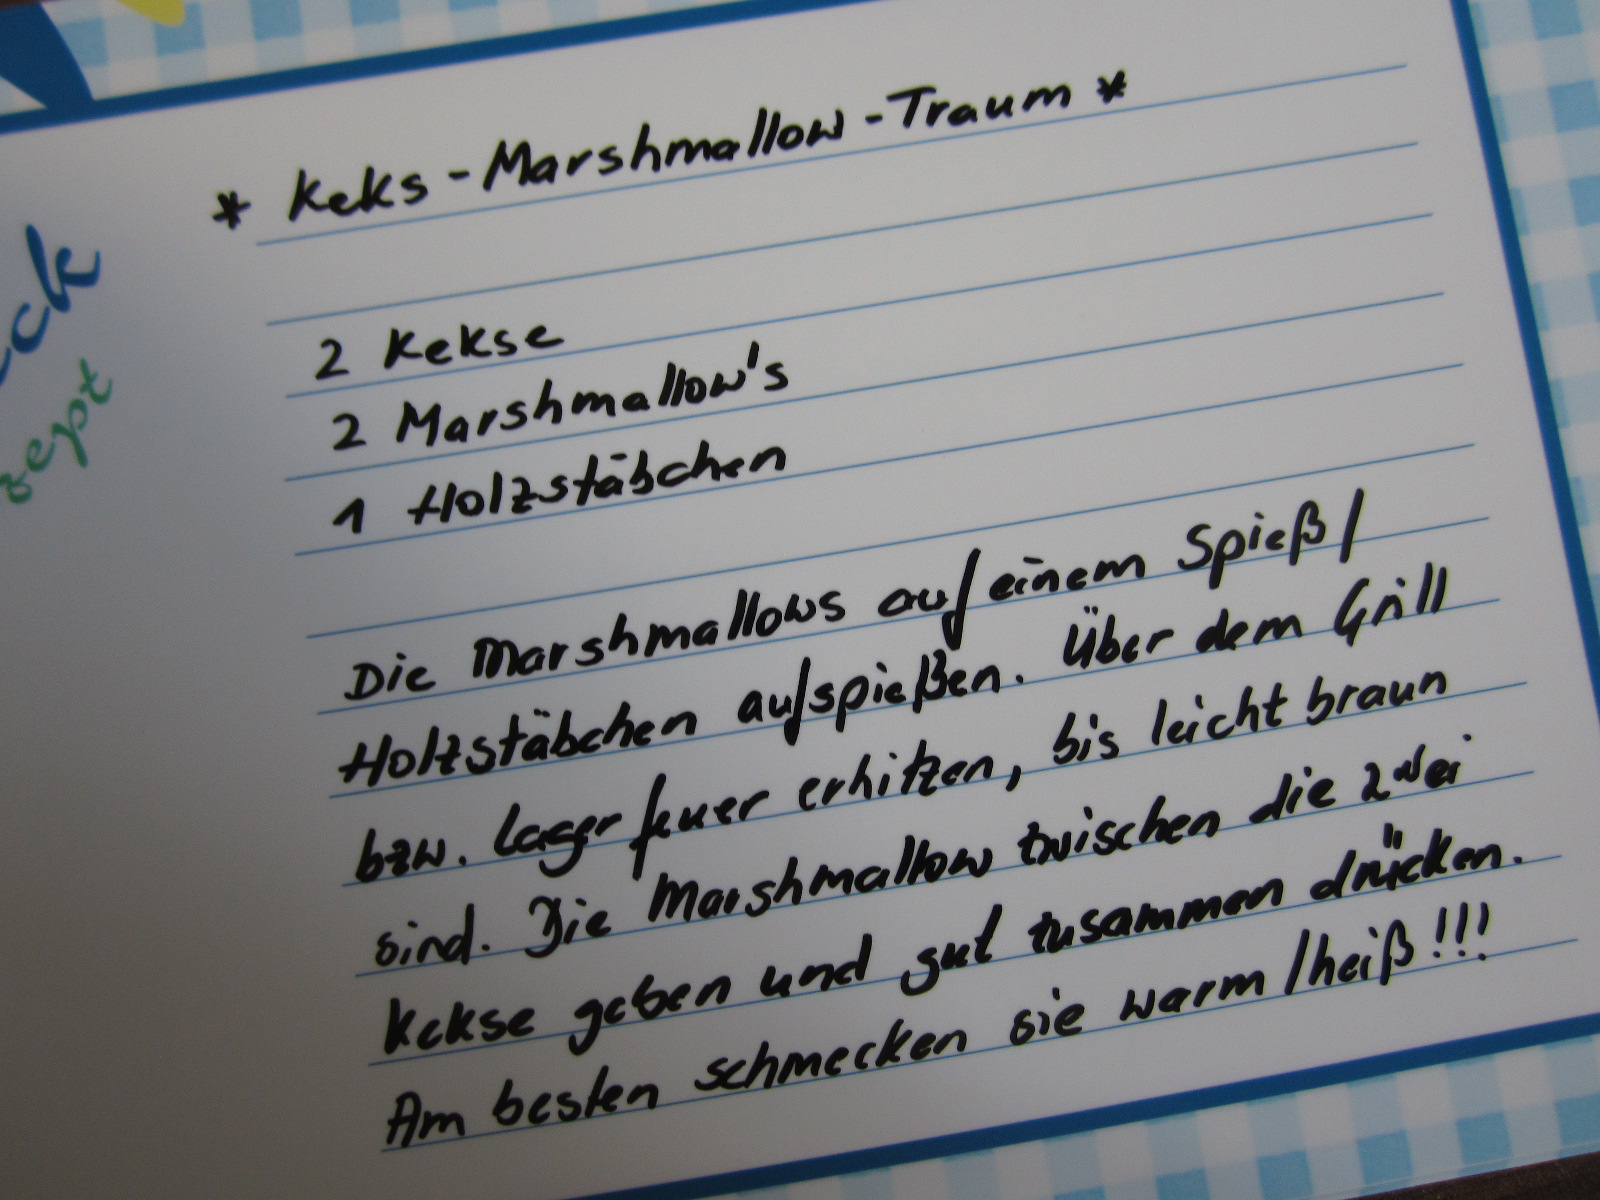 * Keks-Marshmallow-Traum *
2 Kekse
2 Marshmallow's
1 Holzstäbchen
Die Marshmallows auf einem Spieß/
Holzstäbchen aufspießen. Über dem Grill
bzw. Lagerfeuer erhitzen, bis leicht braun
sind. Die Marshmallow zwischen die zwei
Kekse geben und gut zusammen drücken.
Am besten schmecken sie warm/heiß!!!
ck
zept